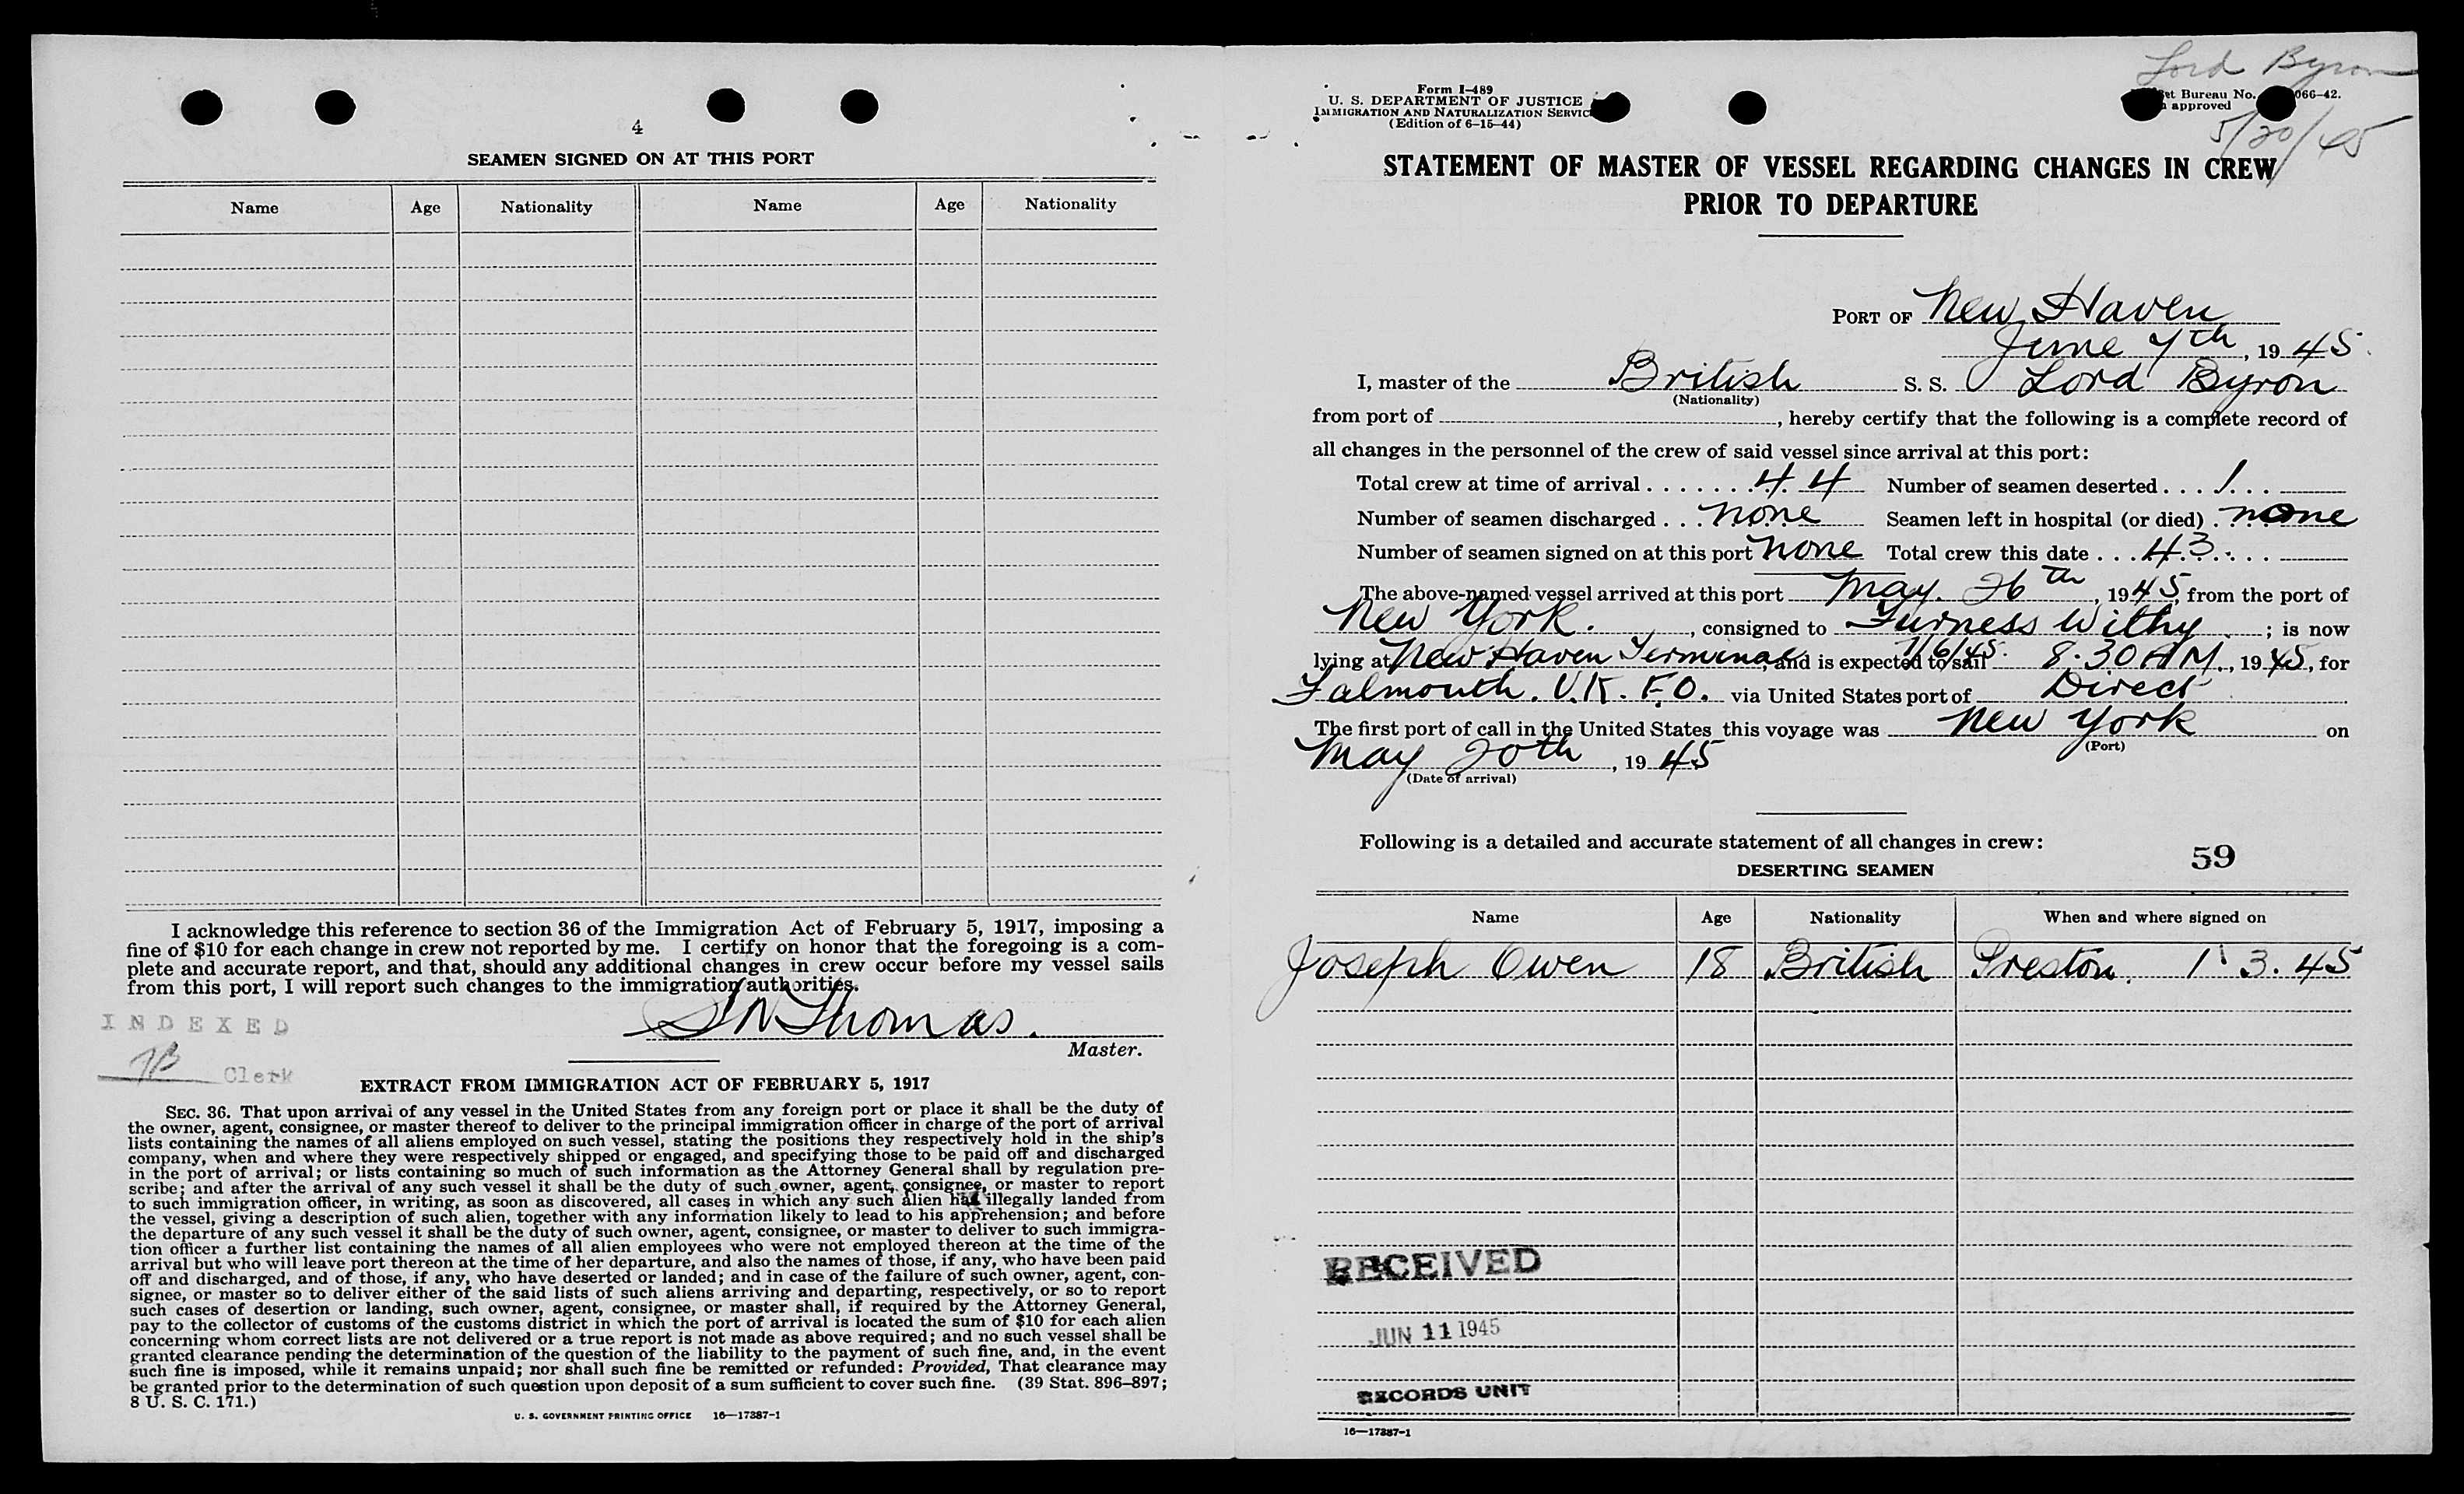 4
SEAMEN SIGNED ON AT THIS PORT
Name Age Nationality Name Age Nationality
I acknowledge this reference to section 36 of the Immigration Act of February 5, 1917, imposing a
fine of $10 for each change in crew not reported by me. I certify on honor that the foregoing is a com-
plete and accurate report, and that, should any additional changes in crew occur before my vessel sails
from this port, I will report such changes to the immigration authorities.
INDEXED
Thomas.
Master.
Clerk
EXTRACT FROM IMMIGRATION ACT OF FEBRUARY 5, 1917
SEC. 36. That upon arrival of any vessel in the United States from any foreign port or place it shall be the duty of
the owner, agent, consignee, or master thereof to deliver to the principal immigration officer in charge of the port of arrival
lists containing the names of all aliens employed on such vessel, stating the positions they respectively hold in the ship's
company, when and where they were respectively shipped or engaged, and specifying those to be paid off and discharged
in the port of arrival; or lists containing so much of such information as the Attorney General shall by regulation pre-
scribe; and after the arrival of any such vessel it shall be the duty of such owner, agent, consignee, or master to report
to such immigration officer, in writing, as soon as discovered, all cases in which any such alien has illegally landed from
the vessel, giving a description of such alien, together with any information likely to lead to his apprehension; and before
the departure of any such vessel it shall be the duty of such owner, agent, consignee, or master to deliver to such immigra-
tion officer a further list containing the names of all alien employees who were not employed thereon at the time of the
arrival but who will leave port thereon at the time of her departure, and also the names of those, if any, who have been paid
off and discharged, and of those, if any, who have deserted or landed; and in case of the failure of such owner, agent, con-
signee, or master so to deliver either of the said lists of such aliens arriving and departing, respectively, or so to report
such cases of desertion or landing, such owner, agent, consignee, or master shall, if required by the Attorney General,
pay to the collector of customs of the customs district in which the port of arrival is located the sum of $10 for each alien
concerning whom correct lists are not delivered or a true report is not made as above required; and no such vessel shall be
granted clearance pending the determination of the question of the liability to the payment of such fine, and, in the event
such fine is imposed, while it remains unpaid; nor shall such fine be remitted or refunded: Provided, That clearance may
be granted prior to the determination of such question upon deposit of a sum sufficient to cover such fine. (39 Stat. 896–897;
8 U. S. C. 171.)
U. S. GOVERNMENT PRINTING OFFICE 16—17387-1
Lord Byron
5/20/45
Form I-489
U. S. DEPARTMENT OF JUSTICE
IMMIGRATION AND NATURALIZATION SERVIC
(Edition of 6-15-44)
et Bureau No. 066-42.
approved
STATEMENT OF MASTER OF VESSEL REGARDING CHANGES IN CREW
PRIOR TO DEPARTURE
PORT OF New Haven
June 7th, 1945.
I, master of the British S. S. Lord Byron
(Nationality)
from port of , hereby certify that the following is a complete record of
all changes in the personnel of the crew of said vessel since arrival at this port:
Total crew at time of arrival 44 Number of seamen deserted 1
Number of seamen discharged none Seamen left in hospital (or died) none
Number of seamen signed on at this port none Total crew this date 43
The above-named vessel arrived at this port May. 26th, 1945, from the port of
New York. , consigned to Furness Withy ; is now
lying at New Haven Terminal, and is expected to sail 7/6/45. 8.30 AM., 1945, for
Falmouth. U.K. F.O. via United States port of Direct
The first port of call in the United States this voyage was New York on
(Port)
May 20th, 1945
(Date of arrival)
Following is a detailed and accurate statement of all changes in crew:
59
DESERTING SEAMEN
Name Age Nationality When and where signed on
Joseph Owen 18 British Preston. 1 3. 45
RECEIVED
JUN 11 1945
RECORDS UNIT
16—17387-1